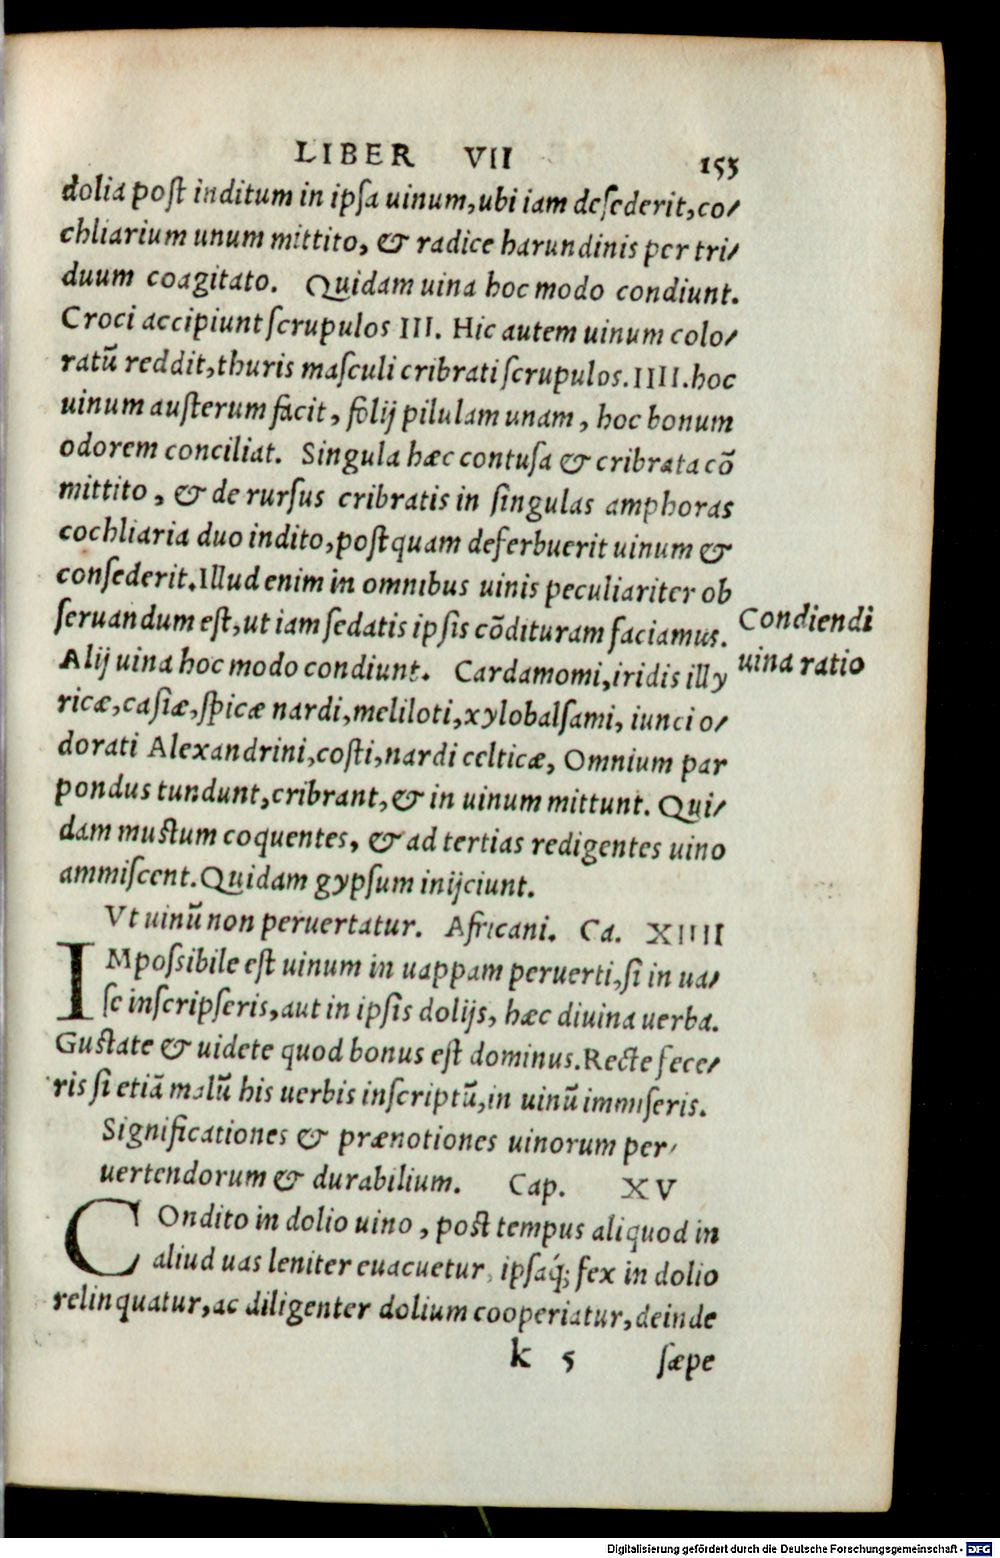 LIBER VII 153
dolia post inditum in ipsa uinum, ubi iam desederit, co/
chliarium unum mittito, & radice harundinis per tri/
duum coagitato. Quidam uina hoc modo condiunt.
Croci accipiunt scrupulos III. Hic autem uinum colo/
ratũ reddit, thuris masculi cribrati scrupulos. IIII. hoc
uinum austerum facit, folij pilulam unam, hoc bonum
odorem conciliat. Singula hæc contusa & cribrata cõ
mittito, & de rursus cribratis in singulas amphoras
cochliaria duo indito, postquam deferbuerit uinum &
consederit. Illud enim in omnibus uinis peculiariter ob
seruandum est, ut iam sedatis ipsis cõdituram faciamus.
Condiendi
uina ratio
Alij uina hoc modo condiunt. Cardamomi, iridis illy
ricæ, casiæ, spicæ nardi, meliloti, xylobalsami, iunci o/
dorati Alexandrini, costi, nardi celticæ, Omnium par
pondus tundunt, cribrant, & in uinum mittunt. Qui/
dam mustum coquentes, & ad tertias redigentes uino
ammiscent. Quidam gypsum inijciunt.
Vt uinũ non peruertatur. Africani. Ca. XIIII
IMpossibile est uinum in uappam peruerti, si in ua/
se inscripseris, aut in ipsis dolijs, hæc diuina uerba.
Gustate & uidete quod bonus est dominus. Recte fece/
ris si etiã malũ his uerbis inscriptũ, in uinũ immiseris.
Significationes & prænotiones uinorum per/
uertendorum & durabilium. Cap. XV
COndito in dolio uino, post tempus aliquod in
aliud uas leniter euacuetur, ipsaq́; fex in dolio
relinquatur, ac diligenter dolium cooperiatur, deinde
k 5 sæpe
Digitalisierung gefördert durch die Deutsche Forschungsgemeinschaft - DFG